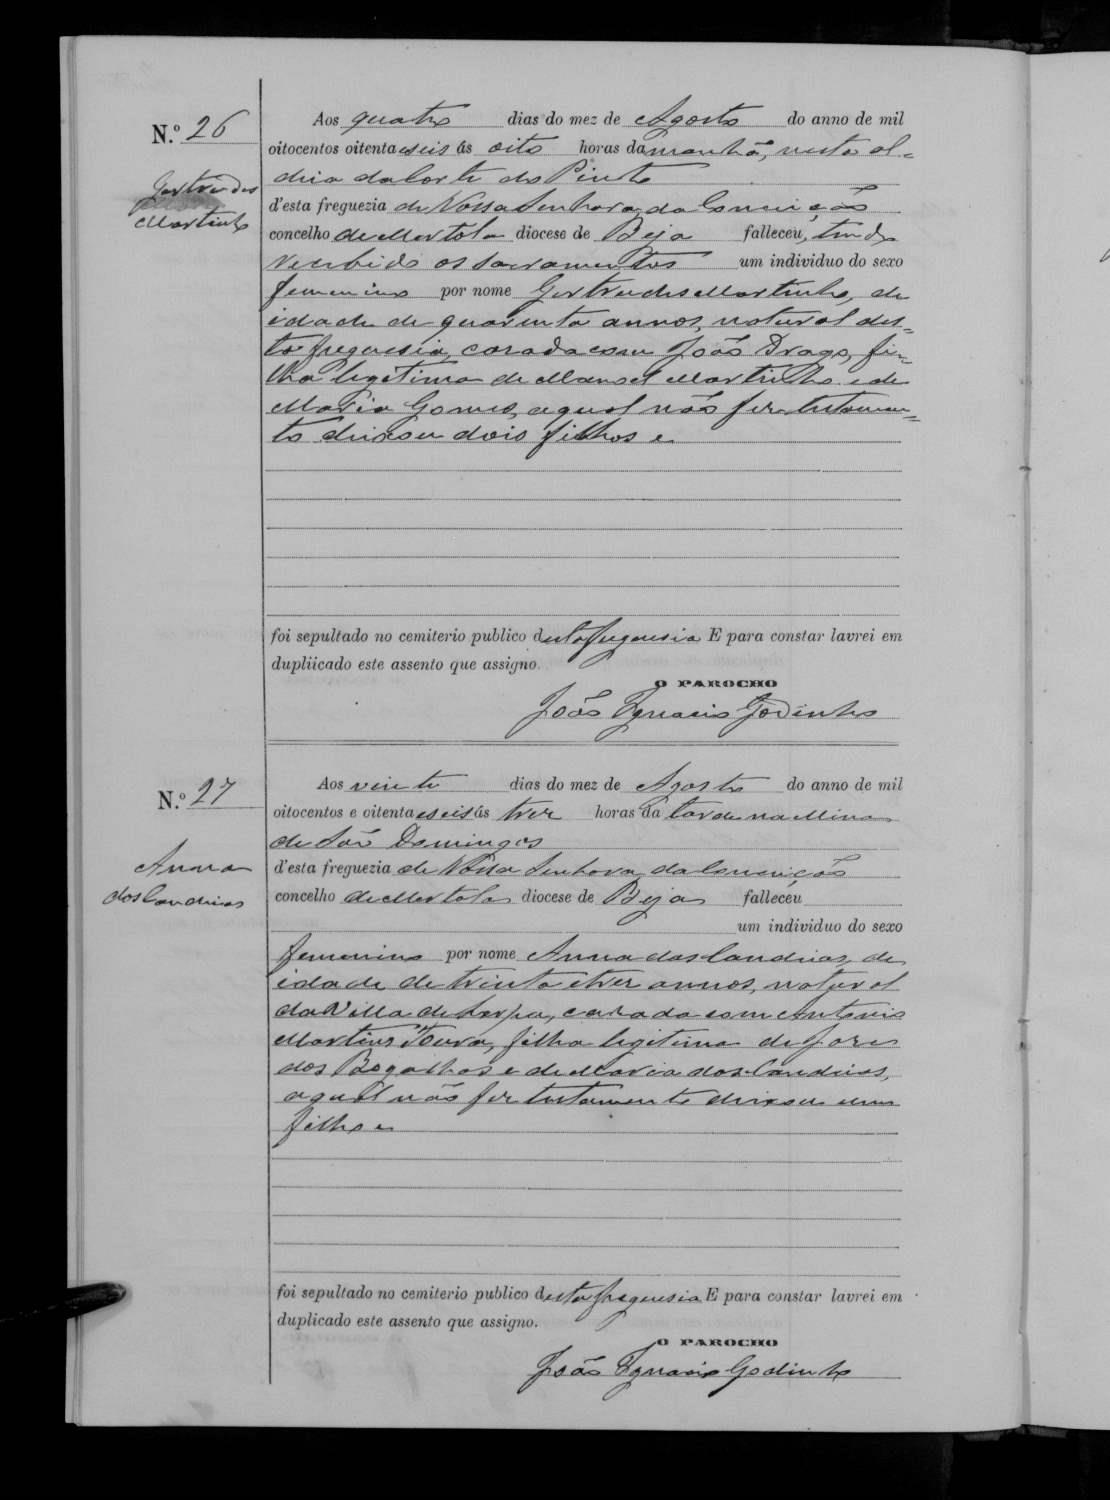 N.º 26
Gertrudes
Martinho
Aos quatro dias do mez de Agosto do anno de mil
oitocentos oitenta e seis ás oito horas da manhã, nesta al=
deia da Corte do Pinto
d'esta freguezia de Nossa Senhora da Conceição
concelho de Mertola diocese de Beja falleceu, tendo
recebido os sacramentos um individuo do sexo
femenino por nome Gertrudes Martinho, de
idade de quarenta annos, natural des=
ta freguesia, casada com João Drago, fi=
lha legitima de Manoel Martinho e de
Maria Gomes, a qual não fez testamen=
to deixou dois filhos e
foi sepultado no cemiterio publico desta freguesia E para constar lavrei em
dupliicado este assento que assigno.
O PAROCHO
João Ignacio Godinho
N.º 27
Anna
das Candeias
Aos vinte dias do mez de Agosto do anno de mil
oitocentos e oitenta e seis ás trez horas da tarde na Mina
de São Domingos
d'esta freguezia de Nossa Senhora da Conceição
concelho de Mertola diocese de Beja falleceu
um individuo do sexo
femenino por nome Anna das Candeias, de
idade de trinta e trez annos, natural
da Villa de Serpa, casada com Antonio
Martins Toura, filha legitima de José
dos Bogalhos e de Maria das Candeias,
a qual não fez testamento deixou um
filho e
foi sepultado no cemiterio publico desta freguesia E para constar lavrei em
duplicado este assento que assigno.
O PAROCHO
João Ignacio Godinho